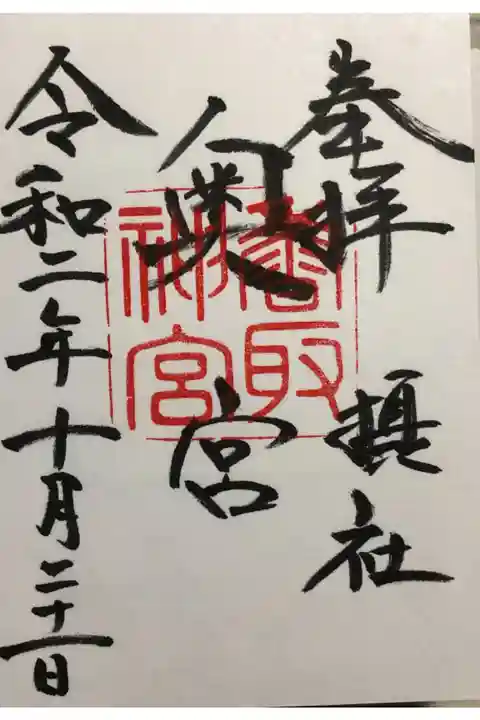 奉拝 摂社
奥宮
香取
神宮
令和二年十月二十一日